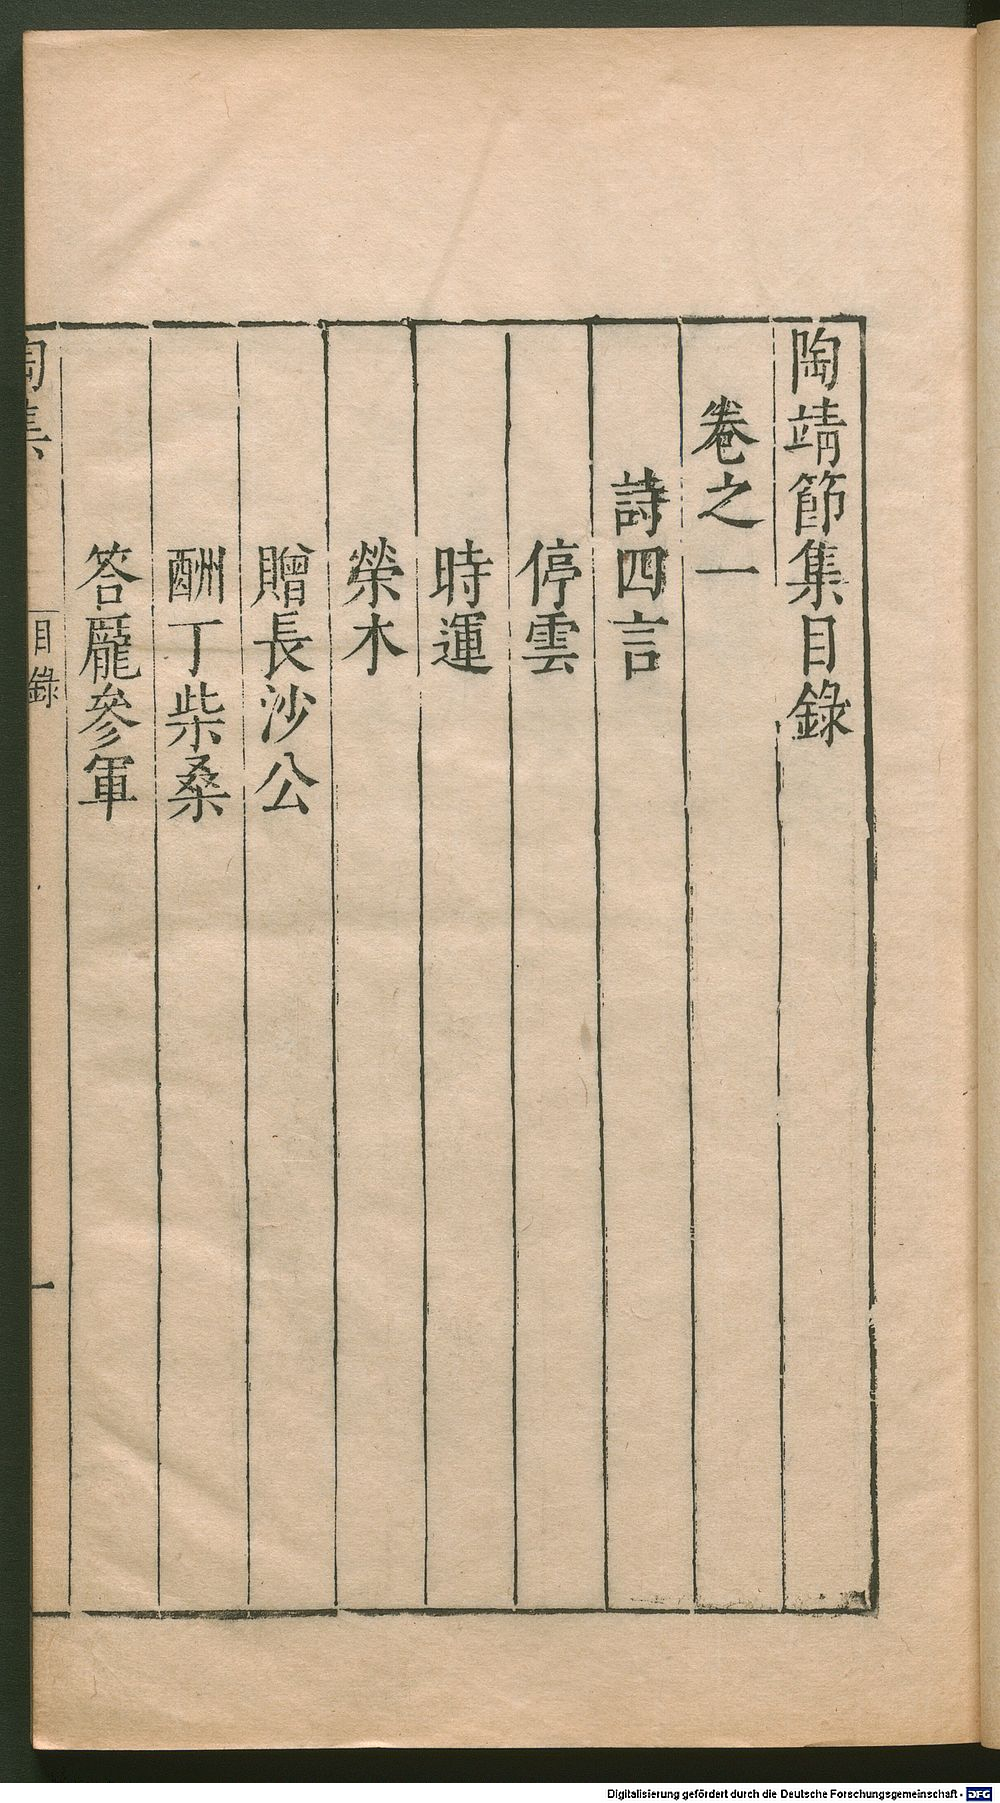 陶靖節集目錄
卷之一
詩四言
停雲
時運
榮木
贈長沙公
酬丁柴桑
答龐參軍
陶集
目錄
一
Digitalisierung gefördert durch die Deutsche Forschungsgemeinschaft - DFG